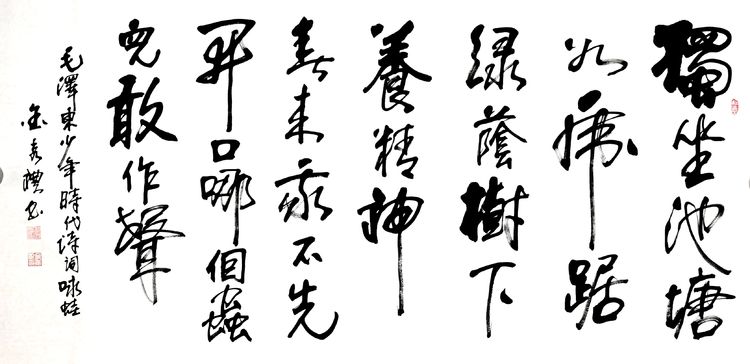 獨坐池塘
如虎踞
綠蔭樹下
養精神
春来我不先
開口哪個蟲
兒敢作聲
毛澤東少年時代詩詞咏蛙